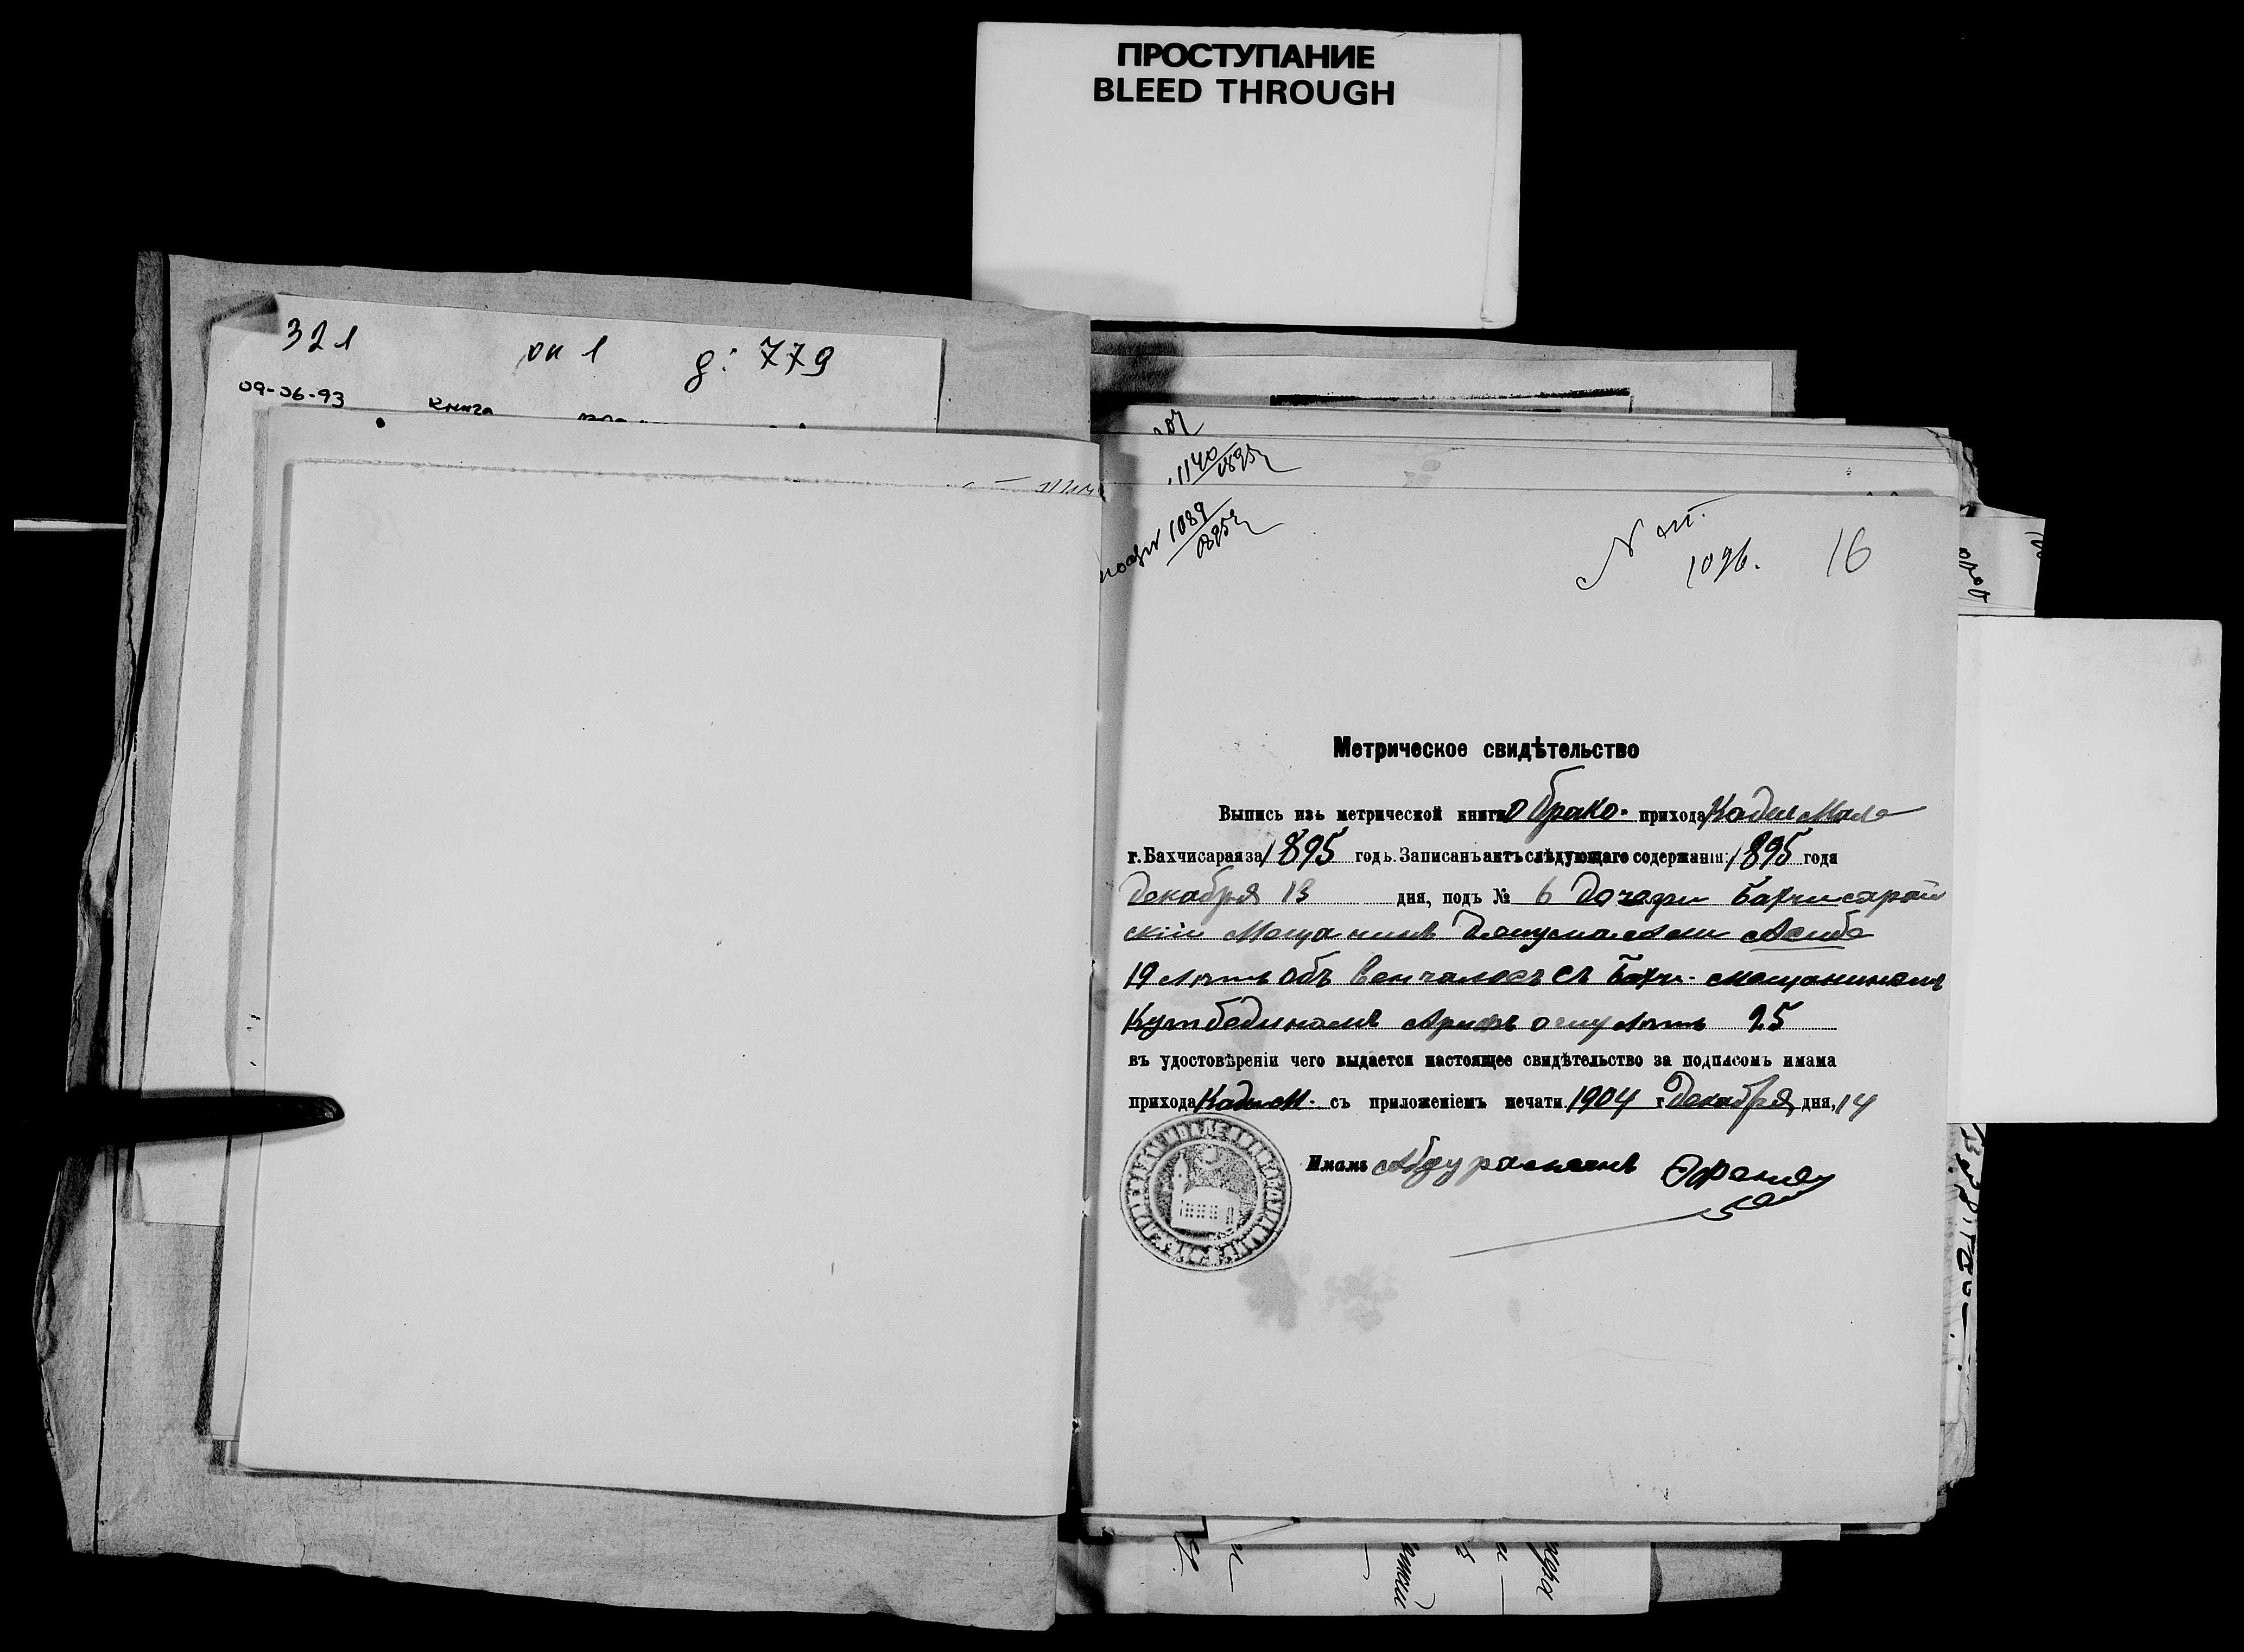 ПРОСТУПАНИЕ
BLEED THROUGH
321 оп 1 д: 779
09-06-93 Книга
1140
1895г
1089
1895г
N
1096. 16
Метрическое свидѣтельство
Выпись изъ метрической книги о брако. прихода Кады Мале
г. Бахчисарая за 1895 годъ. Записанъ актъ слѣдующаго содержанія: 1895 года
Декабря 13 дня, подъ № 6 дочери Бахчисарай
скій Мещанинъ Асибе
19 лѣтъ объ венчалось съ Бахч. мещанином
Кутбединомъ Арифъ оглу лѣтъ 25
въ удостовѣреніи чего выдается настоящее свидѣтельство за подписомъ имама
прихода Кады М. съ приложеніемъ печати 1904 г Декабря дня, 14
Имамъ Абдураманъ Эфенди